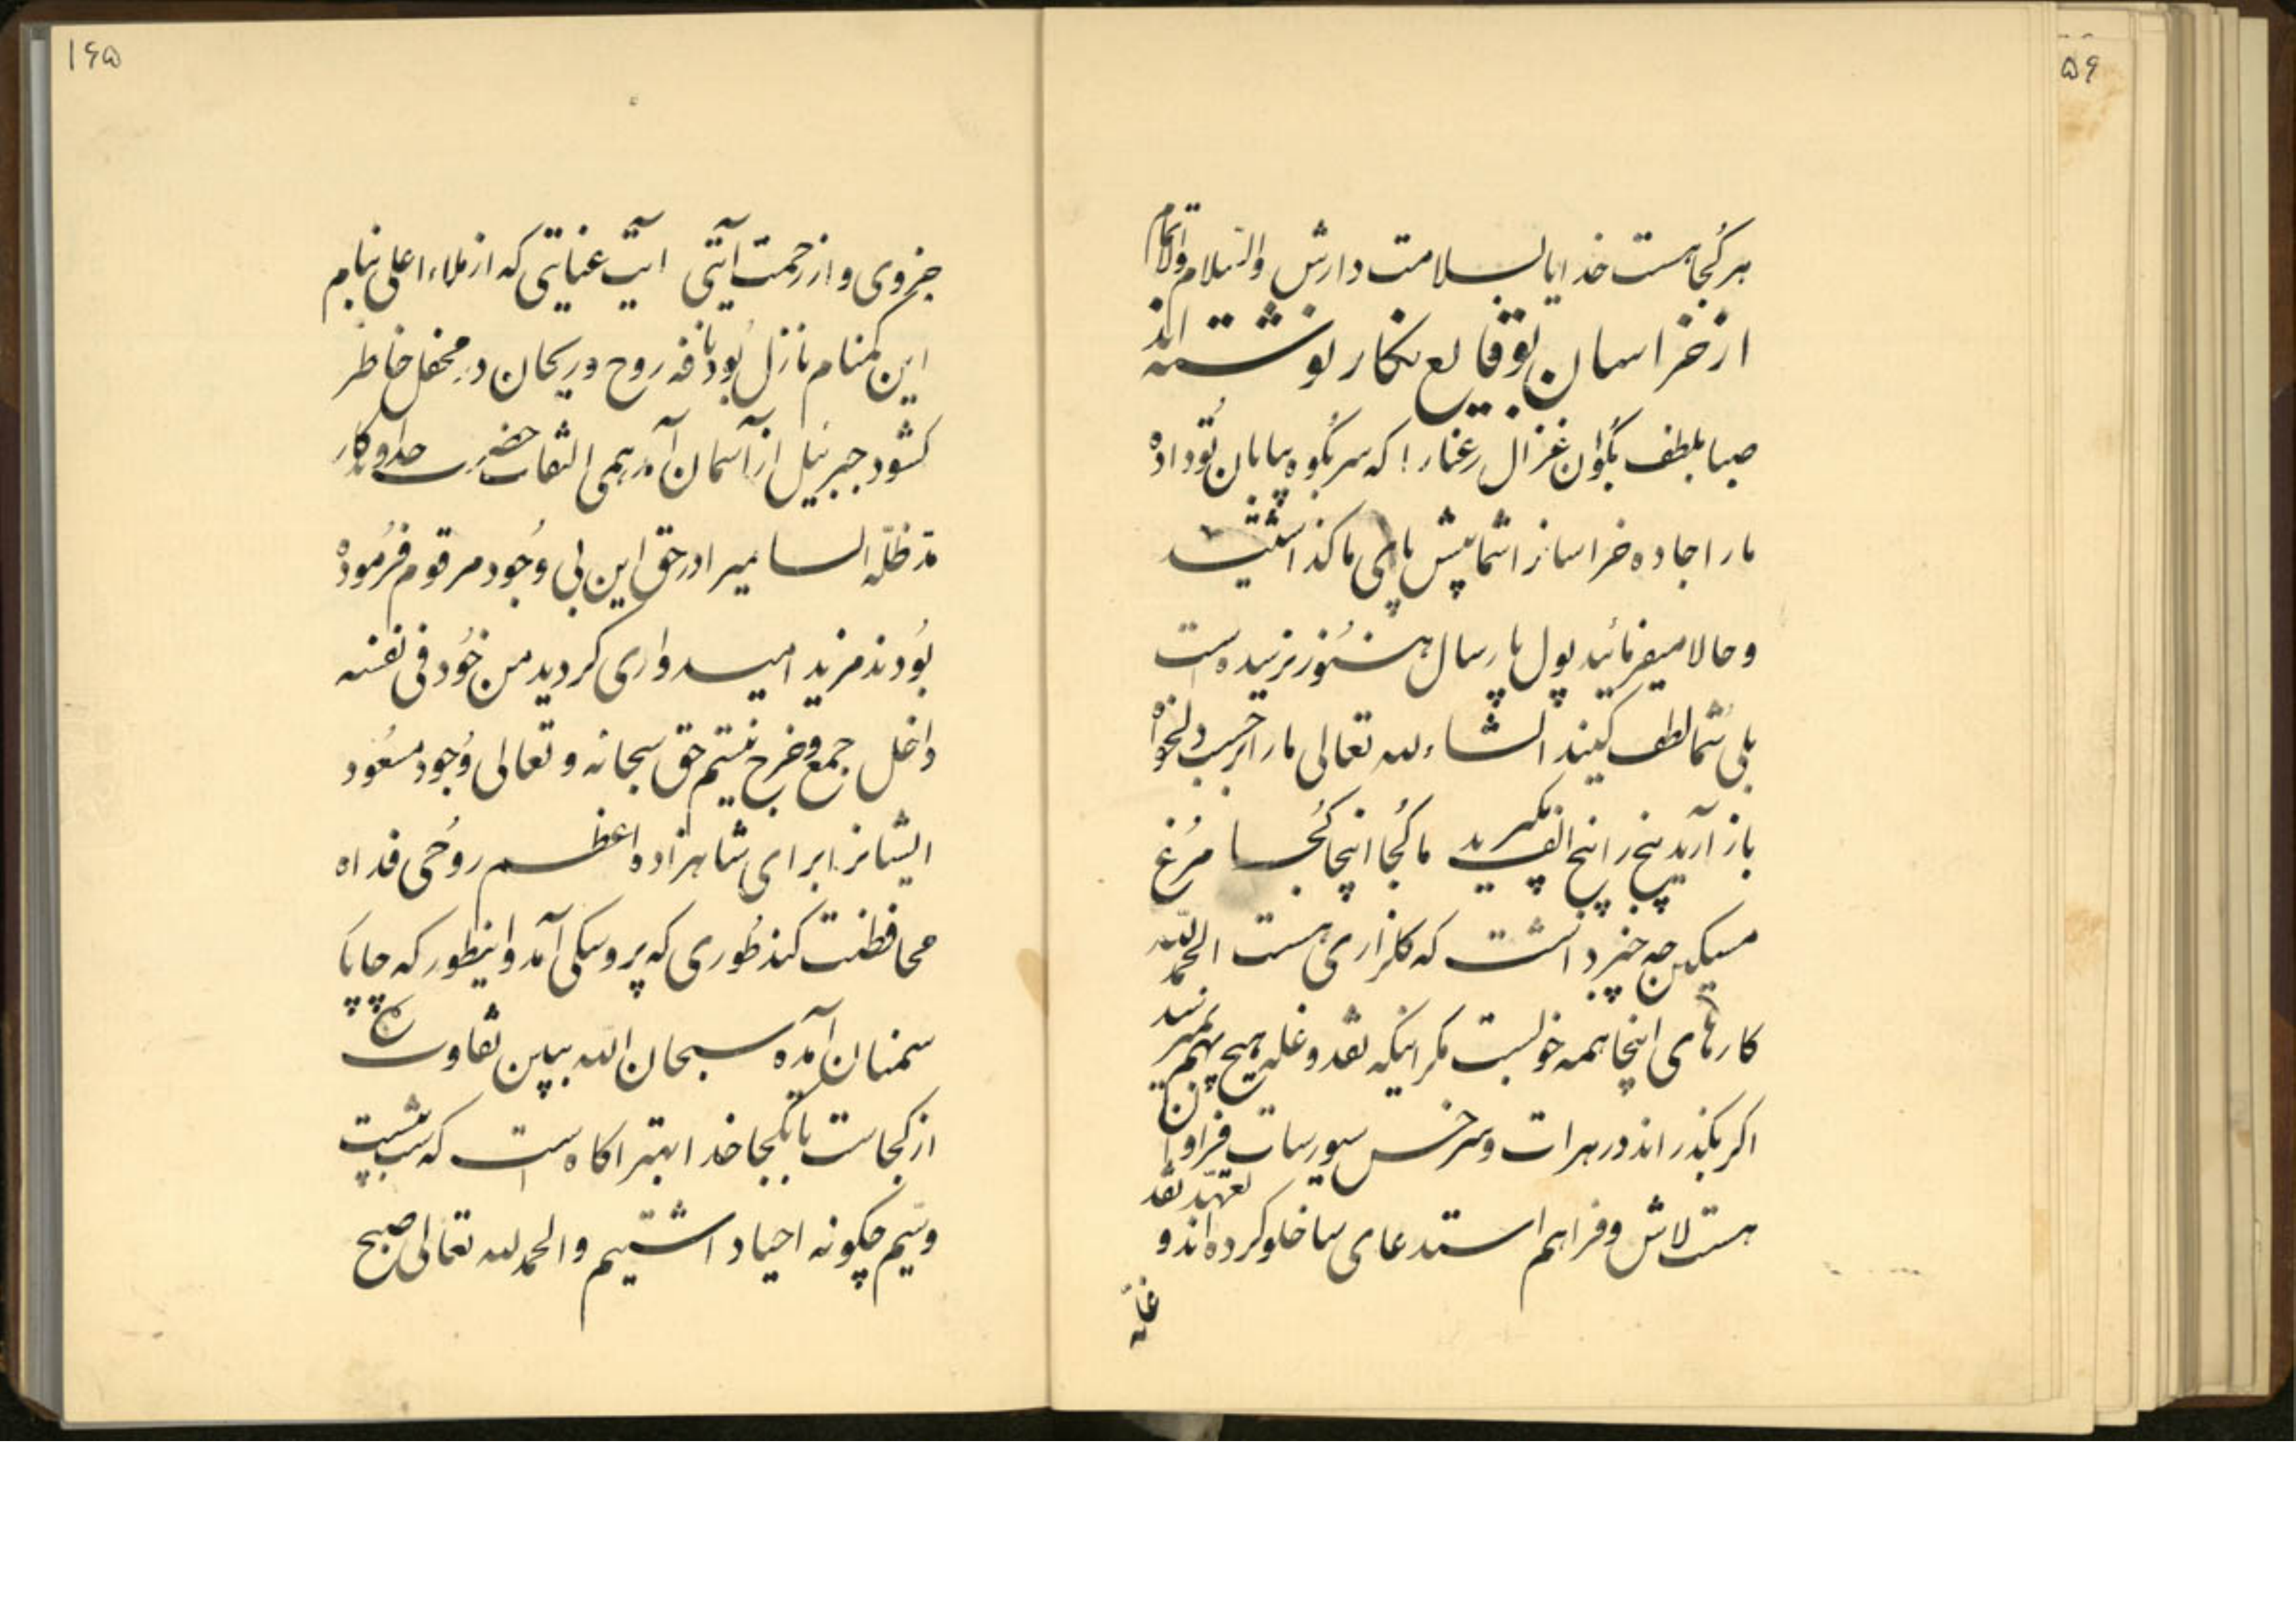 هر کجا هست خدایا بسلامت دارش والسّلام والاکرام
از خراسان بوقایع نکار نوشته اند
صبا بلطف بگو ان غزال رعنا را که سر بکوه بیابان تو داده
ما را جاده خراسانرا شما پیش پای ما گذاشتید
و حالا میفرمائید پول پارسال هنوز نرسیده است
بلی شما لطف کنید انشاءلله تعالی ما را بر حسب دلخواه
باز آرید پنج را پنج الف مگیرید ما کجا اینجا کجا مرغ
مسکین چه خبر داشت که گلزاری هست الحمدلله
کارهای اینجا همه خوبست مکر اینکه نقد و غله هیچ بهم نمیرسد
اکر بکذراند در هرات و سرخس سیورسات فراوان
هست لاش و فراهم استدعای ساخلو کرده اند و تعهد نقد
غله
۱۶۵
جزوی و از رحمت آیتی آیت عنایتی که از ملاء اعلی بنام
این کمنام نازل بود نافه روح و ریحان در محفل خاطر
کشود جبرئیل از آسمان آمد همی التفات حضرت خداوندکار
مدّ ظلّه السامیرا در حق این بی وجود مرقوم فرموده
بودند مزید امیدواری کردید من خود فی نفسه
داخل جمع و خرج نیستم حق سبحانه و تعالی وجود مسعود
ایشانرا برای شاهزاده اعظم روحی فداه
محافظت کند طوری که پروسکی آمد و اینطور که چاپار
سمنان آمده سبحان الله ببین تفاوت
از کجاست تا بکجا خدا بهتر اکاه است که شب بیست
و سیم چکونه احیا داشتیم و الحمدلله تعالی صبح
۵۶